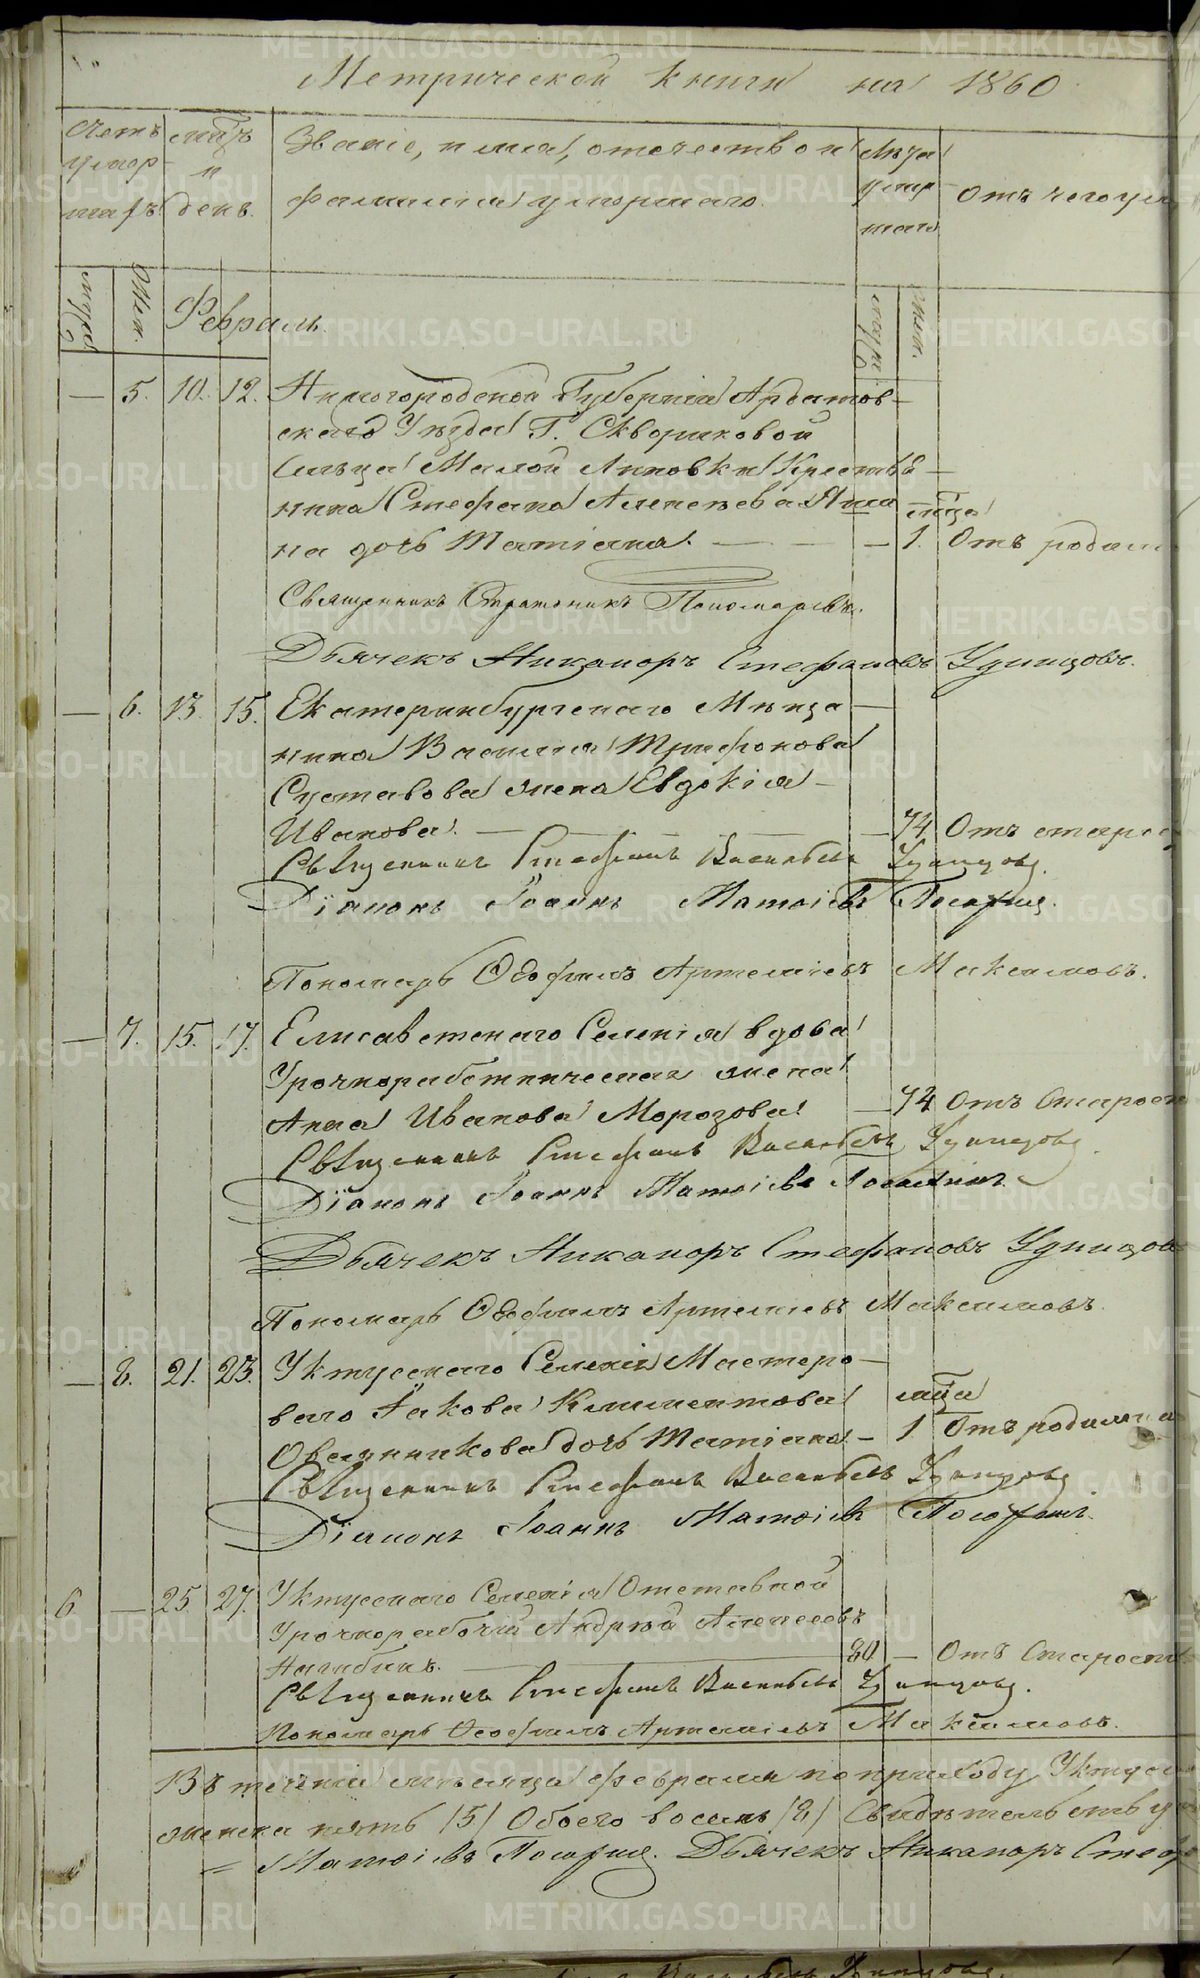 Метрической книги на 1860
Счетъ умер шихъ
мѣць и день.
Званіе, имя, отечество и фамилія умершаго.
Лѣта умер шаго
Отъ чего ум
муж.
жен.
Февраль.
муж.
жен.
— 5. 10. 12. Нижегородской Губерніи Ардатов-
скаго Уѣзда Г. Скворцковой
Сельца Малой Липовки Крестья-
нина Стефана Алексѣева
на дочь Татіана. — — — 1. Отъ родим
мѣца
Священникъ Стратоникъ Пономаревъ.
Дьячекъ Никаноръ Стефановъ Удинцовъ.
— 6. 13. 15. Екатеринбургскаго Мѣща-
нина Василія Трифонова
Суставова жена Евдокія
Иванова. — — — 74. Отъ старос
Священникъ Стефанъ Васильевъ Удинцовъ.
Діаконъ Іоаннъ Матѳіевъ
Пономарь Ѳеофилъ Артемьевъ Максимовъ.
— 7. 15. 17. Елисаветскаго Селенія вдова
Урочноработническая жена
Анна Иванова Морозова. — 74 Отъ Старост
Священникъ Стефанъ Васильевъ Удинцовъ
Діаконъ Іоаннъ Матѳіевъ
Дьячекъ Никаноръ Стефановъ Удинцов
Пономарь Ѳеофилъ Артемьевъ Максимовъ.
— 8. 21. 23. Уктусскаго Селенія Мастеро-
ваго Іакова Климентова мѣца
Овсянникова дочь Татіана — 1 Отъ родимца
Священникъ Стефанъ Васильевъ Удинцовъ
Діаконъ Іоаннъ Матѳіевъ
6 — 25 27. Уктусскаго Селенія Отставной
Урочнорабочій Андрей Алексеевъ
Нагибинъ. — 80 — Отъ Старости
Священникъ Стефанъ Васильевъ Удинцовъ.
Пономарь Ѳеофилъ Артемьевъ Максимовъ.
Въ теченіи мѣсяца февраля по приходу Уктус
женска пять (5) Обоего восемь (8) Свидѣтельству
= Матѳіевъ Дьячекъ Никаноръ Стеф